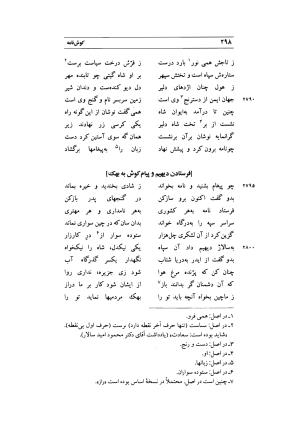 ۲۹۸
کوش‌نامه
ز تاجش همی نور¹ بارد درست ز فرّش درخت سیاست برست²
ستاره‌ش سپاه است و تختش سپهر بر او شاه گیتی چو تابنده مهر
ز هول چنان اژدهای دلیر دل دیو کنده‌ست و دندان شیر
۲۷۹۰ جهان ایمن از دسترنج³ وی است زمین سربسر تاج و گنج وی است
چنین تا درآمد به‌ایوان شاه همی‌گفت نوشان از این‌گونه راه
نشست از بر⁴ تخت شاه دلیر یکی کرسی زر نهادند، زیر
گرانمایه نوشان برآن برنشست همان‌گه سوی آستین کرد دست
چو‌نامه برون کرد و پیشش نهاد زبان را⁵ به‌پیغامها برگشاد
[فرستادن دیهیم و پیام کوش به بهک]
۲۷۹۵ چو پیغام بشنید و نامه بخواند ز شادی بخندید و خیره بماند
بدو گفت اکنون برو سازکن در گنجهای پدر بازکن
فرستاد نامه به‌هر کشوری به‌هر نامداری و هر مهتری
سراسر سپه را به‌درگاه خواند بدان‌سان که در چین سواری نماند
گزین کرد از آن لشکری چل‌هزار ستوده سوار از⁶ درِ کارزار
۲۸۰۰ به‌سالارْ دیهیم داد آن سپاه یکی نیکدل، شاه را نیکخواه
بدو گفت از ایدر به‌دریا شتاب نگهدار یکسر گذرگاه آب
چنان کن که پرّنده مرغ هوا ز سوی جزیره، نداری روا
که آن دشمنان گر بدانند باز⁷ از ایشان شود کار بر ما دراز
ز ماچین بخواه آنچه باید تو را بهک مردمیها نماید تو را
۱ـ در اصل: همی فرو.
۲ـ در اصل: سیاست (تنها حرف آخر نقطه دارد) برست (حرف اول بی‌نقطه). شاید بوده است: سعادت. (یادداشت آقای دکتر محمود امید سالار).
۳ـ در اصل: دست و رنج.
۴ـ در اصل: او.
۵ـ در اصل: زبانها.
۶ـ در اصل: ستوده سواران.
۷ـ چنین است در اصل. محتملاً در نسخهٔ اساس بوده است درازه.